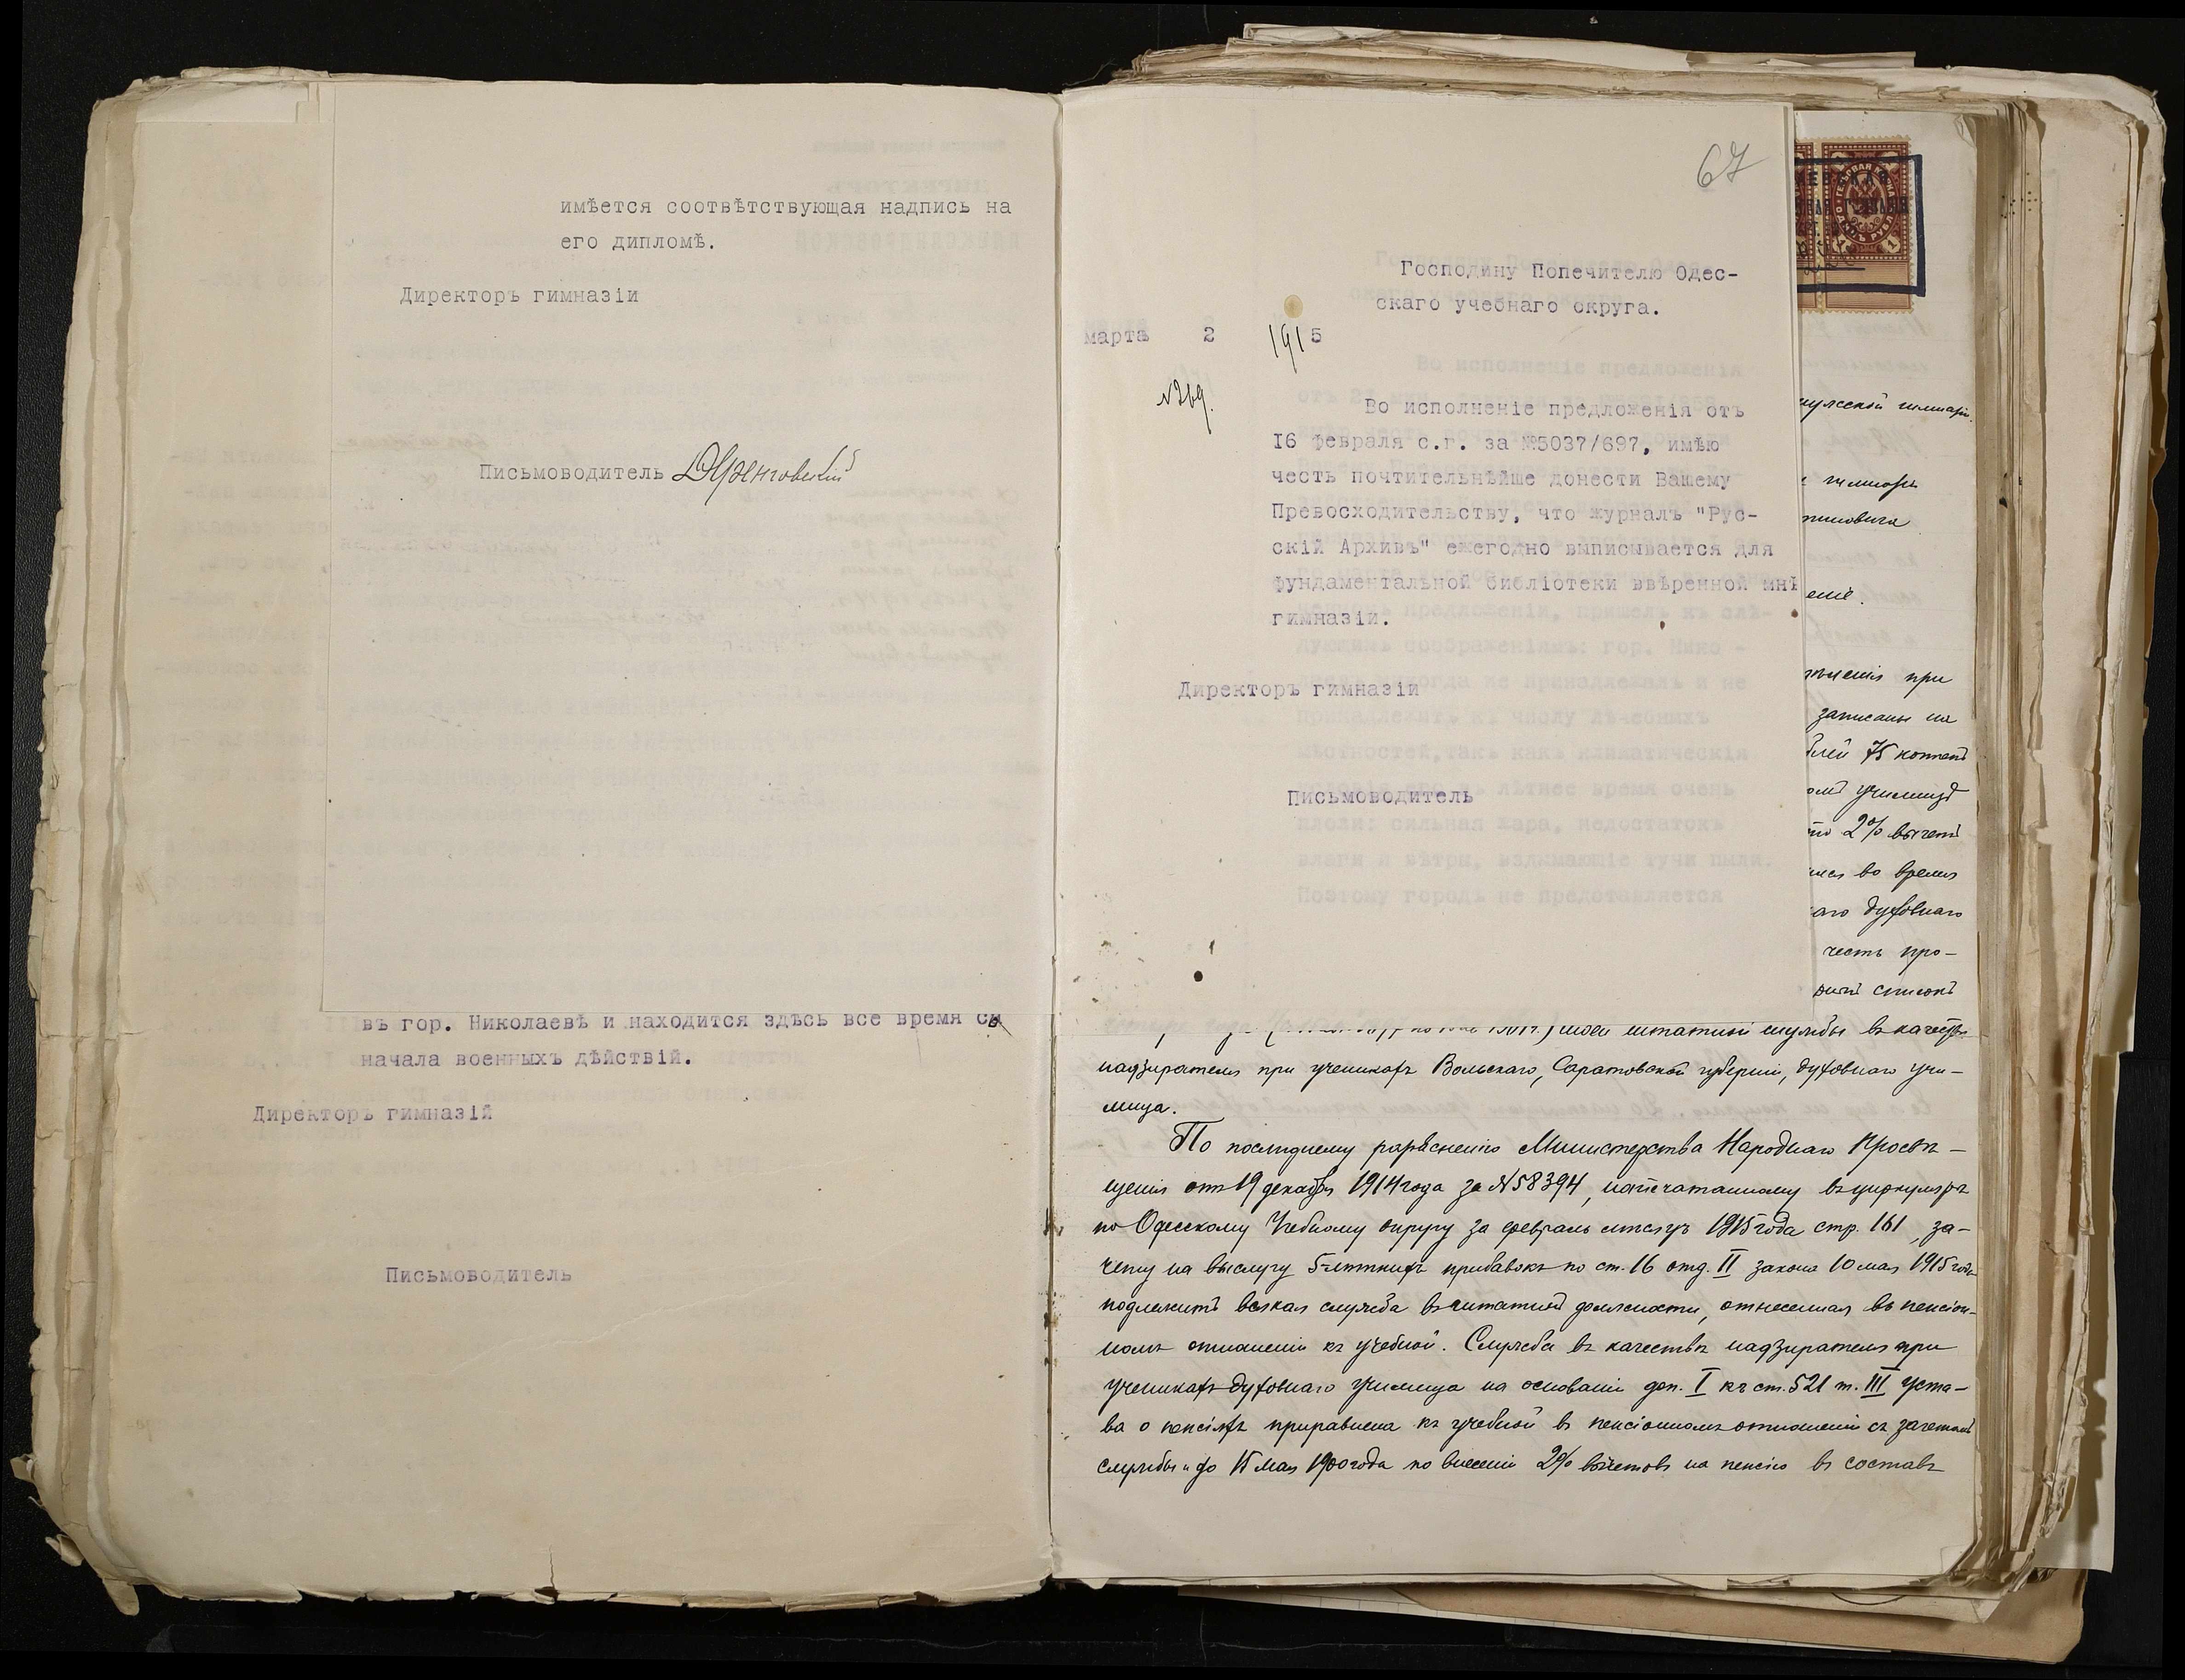 имѣется соотвѣтствующая надпись на
его дипломѣ.
Директоръ гимназіи
Письмоводитель
въ гор. Николаевѣ и находится здѣсь все время съ
начала военныхъ дѣйствій.
Директоръ гимназій
Письмоводитель
67
Господину Попечителю Одес-
скаго учебнаго округа.
марта 2 1915
№269.
Во исполненіе предложенія отъ
16 февраля с.г. за №5037/697, имѣю
честь почтительнѣйше донести Вашему
Превосходительству, что журналъ "Рус-
скій Архивъ" ежегодно выписывается для
фундаментальной библіотеки ввѣренной мнѣ
гимназіи.
Директоръ гимназіи
Письмоводитель
штатной службы въ качествѣ
надзирателя при ученикахъ Вольскаго, Саратовской губерніи, духовнаго учи-
лища.
По послѣднему разъясненію Министерства Народнаго Просвѣ-
щенія отъ 19 декабря 1914 года за №58394, напечатанному въ циркулярѣ
по Одесскому Учебному округу за февраль мѣсяцъ 1915 года стр. 161, за-
чету на выслугу 5-лѣтнихъ прибавокъ по ст. 16 отд. II закона 10 мая 1915 года
подлежитъ всякая служба въ штатной должности, отнесенная въ пенсіон-
номъ отношеніи къ учебной. Служба въ качествѣ надзирателя при
ученикахъ духовнаго училища на основаніи доп. I къ ст. 521 т. III уста-
ва о пенсіяхъ приравнена къ учебной въ пенсіонномъ отношеніи съ зачетомъ
службы и до 15 мая 1900 года по внесеніи 2% вычетовъ на пенсію въ составъ
при
записаны на
75 копеекъ
2% вычетъ
во время
духовнаго
честь про-
списокъ